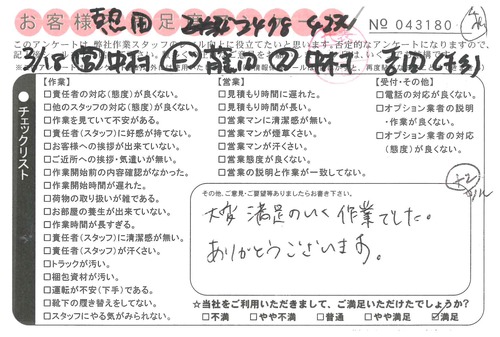 お客様満足度
No 043180
このアンケートは、弊社作業スタッフのスキル向上に役立てたいと思います。否定的なアンケートになりますので、
3/18
中村
中村
チェックリスト
【作業】
□責任者の対応(態度)が良くない。
□他のスタッフの対応(態度)が良くない。
□作業を見ていて不安がある。
□責任者(スタッフ)に好感が持てない。
□お客様への挨拶が出来ていない。
□ご近所への挨拶・気遣いが無い。
□作業開始前の内容確認がなかった。
□作業開始時間が遅れた。
□荷物の取り扱いが雑である。
□お部屋の養生が出来ていない。
□作業時間が長すぎる。
□責任者(スタッフ)に清潔感が無い。
□責任者(スタッフ)が汗くさい。
□トラックが汚い。
□梱包資材が汚い。
□運転が不安(下手)である。
□靴下の履き替えをしてない。
□スタッフにやる気がみられない。
【営業】
□見積もり時間に遅れた。
□見積もり時間が長い。
□営業マンに清潔感が無い。
□営業マンが煙草くさい。
□営業マンが汗くさい。
□営業態度が良くない。
□営業の説明と作業が一致してない。
【受付・その他】
□電話の対応が良くない。
□オプション業者の説明
・作業が良くない。
□オプション業者の対応
(態度)が良くない。
その他、ご意見・ご要望等ありましたらお書き下さい。
大変満足のいく作業でした。
ありがとうございます。
☆当社をご利用いただきまして、ご満足いただけたでしょうか?
□不満 □やや不満 □普通 □やや満足 ☑満足